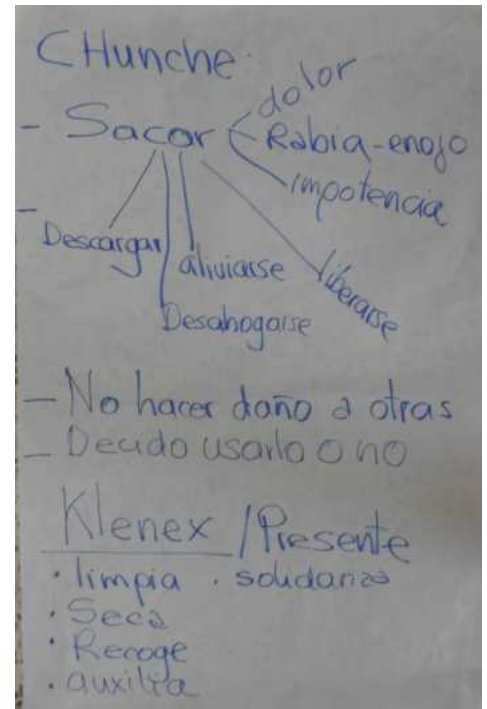 CHunche.
- Sacar
dolor
Rabia-enojo
impotencia
-
Descargar
aliviarse
liberarse
Desahogarse
- No hacer daño a otras
- Decido usarlo o no
Klenex / Presente
. limpia . solidariza
. Seca
. Recoge
. auxilia